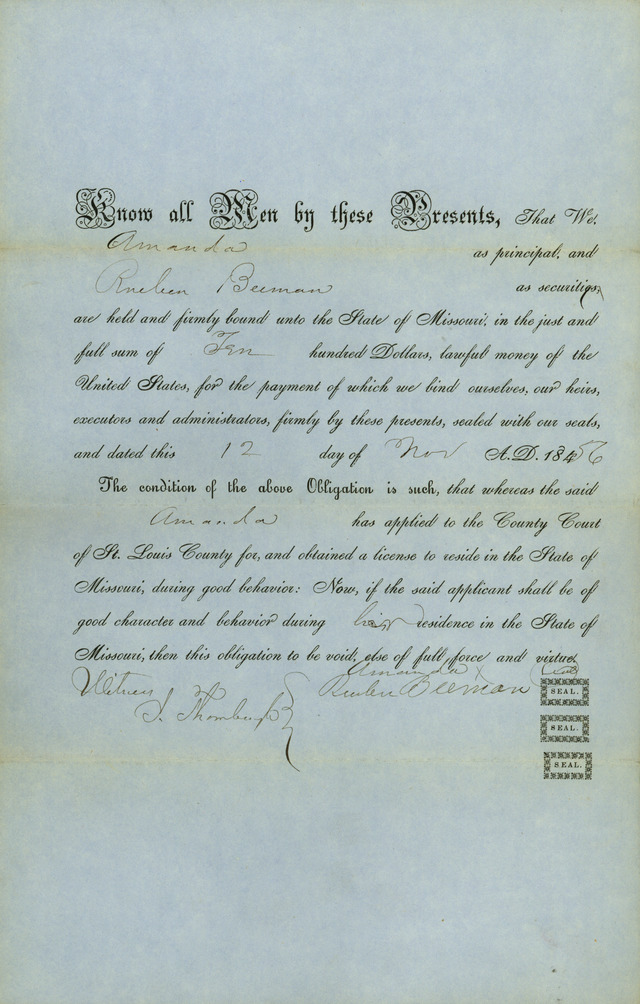 Know all Men by these Presents, That We,
Amanda as principal, and
Reuben Beeman as securities,
are held and firmly bound unto the State of Missouri, in the just and
full sum of Ten hundred Dollars, lawful money of the
United States, for the payment of which we bind ourselves, our heirs,
executors and administrators, firmly by these presents, sealed with our seals,
and dated this 12 day of Nov A.D. 1856
The condition of the above Obligation is such, that whereas the said
Amanda has applied to the County Court
of St. Louis County for, and obtained a license to reside in the State of
Missouri, during good behavior: Now, if the said applicant shall be of
good character and behavior during residence in the State of
Missouri, then this obligation to be void, else of full force and virtue.
Amanda
Witness Reuben Beeman SEAL.
SEAL.
SEAL.